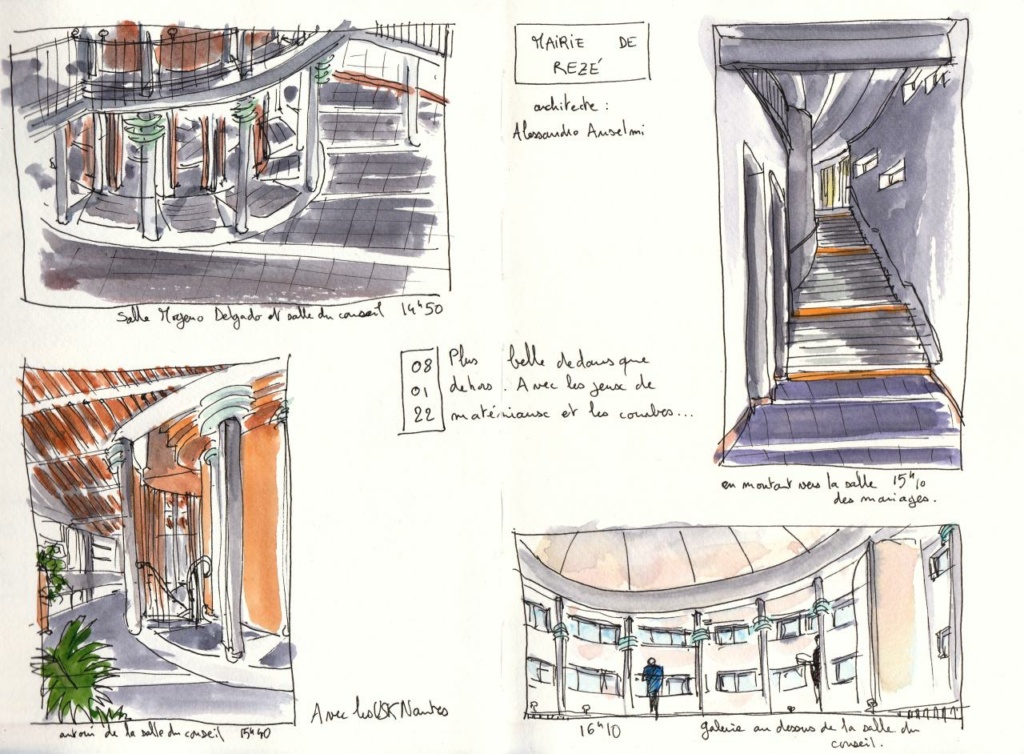 MAIRIE DE
REZÉ
architecte :
Alessandro Anselmi
Salle Moreno Delgado et salle du conseil 14h50
08
01
22
Plus belle dedans que
dehors. Avec les jeux de
matériaux et les courbes...
en montant vers la salle 15h10
des mariages.
autour de la salle du conseil 15h40
Avec les USK Nantes
16h10 galerie au dessus de la salle du
conseil.